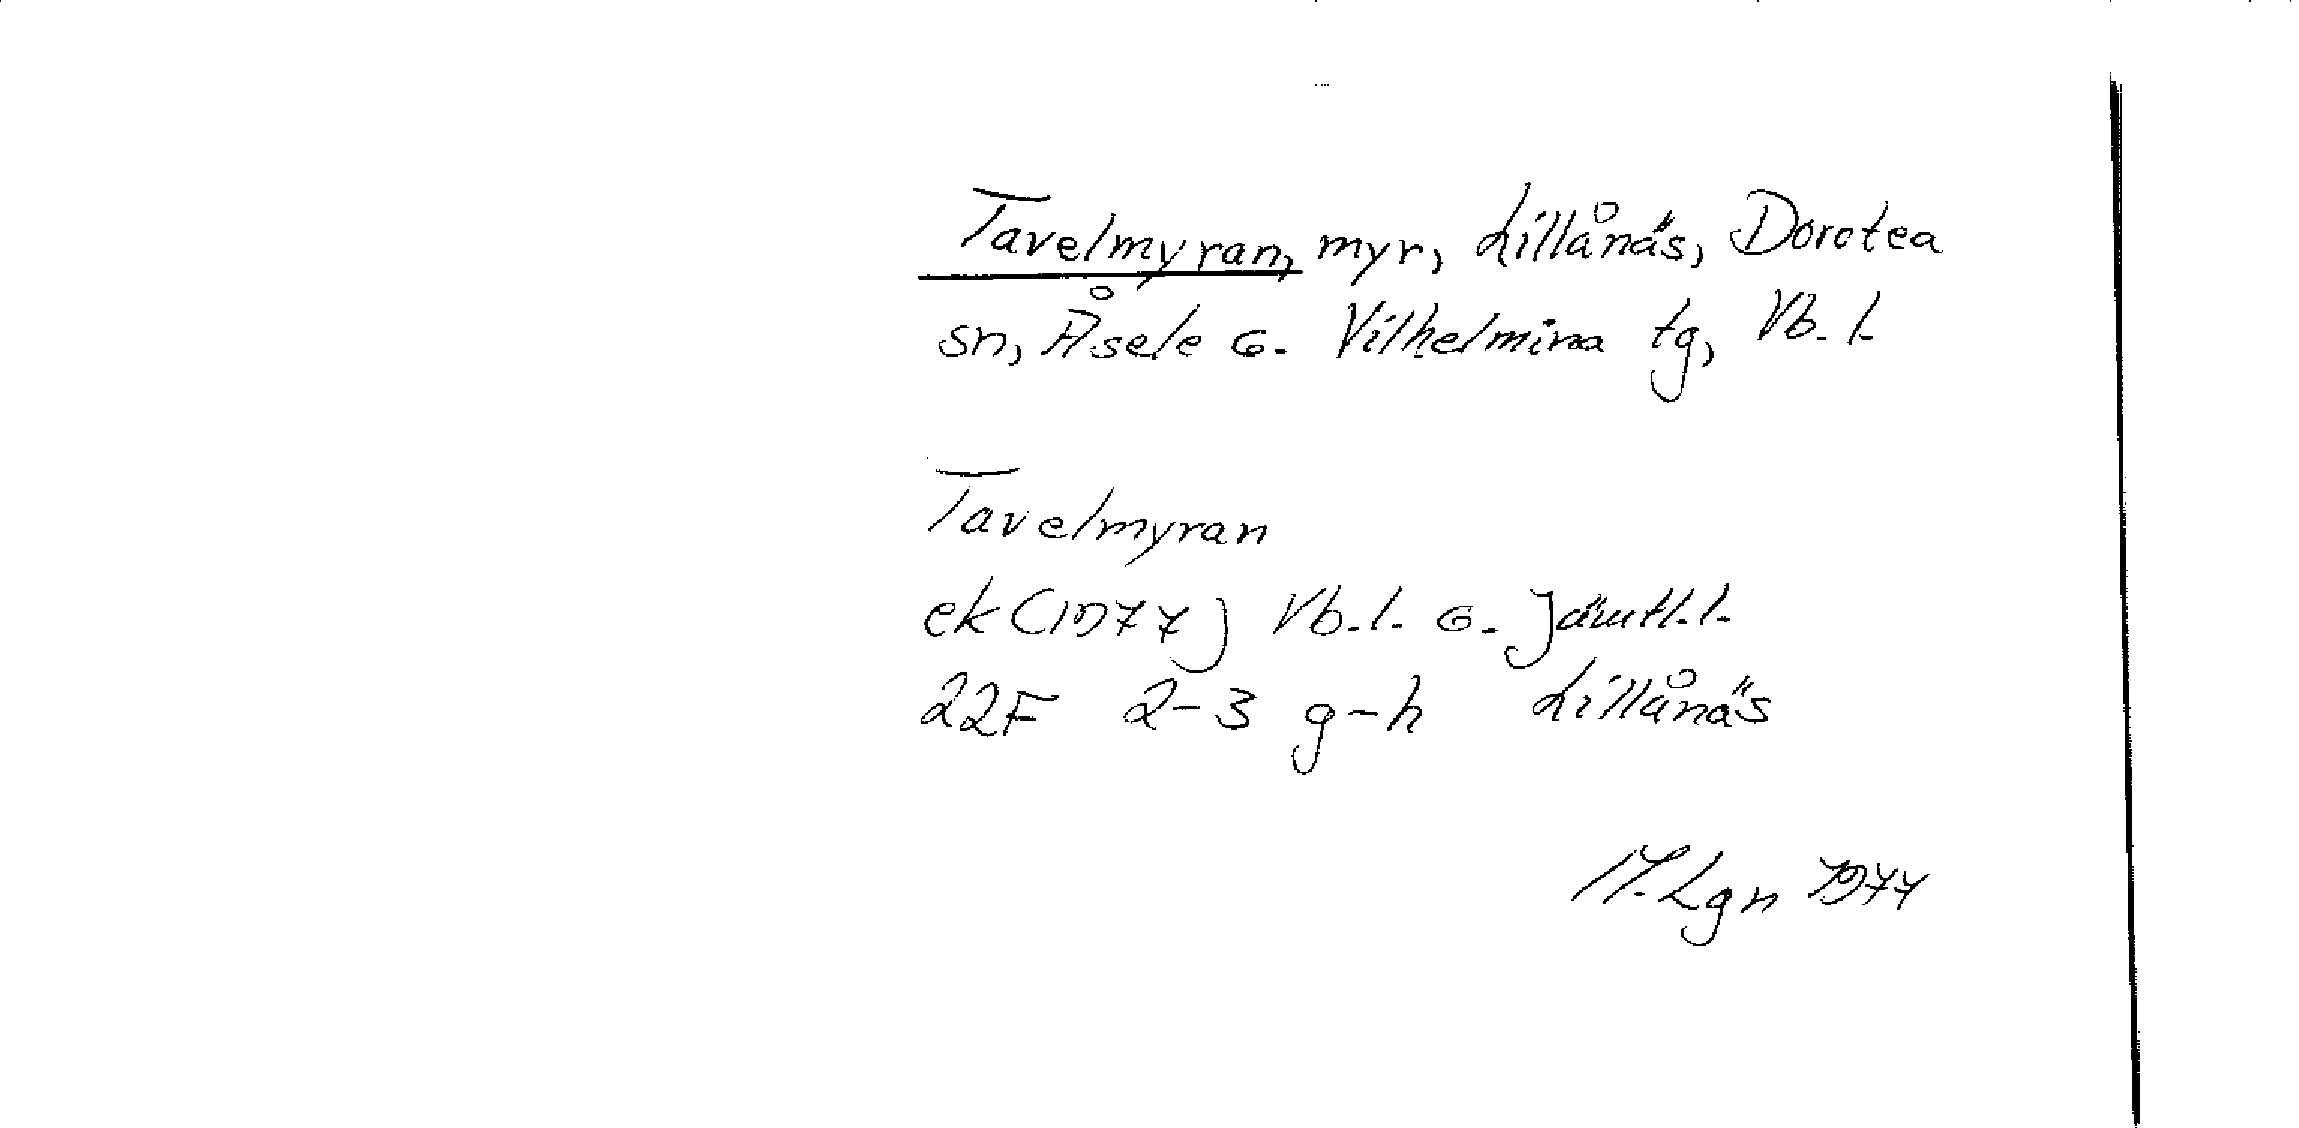 Tavelmyran, myr, Lillånäs, Dorotea
sn, Åsele o. Vilhelmina tg, Vb. l.
Tavelmyran
ek (1977) Vb. l. o. Jämtl. l.
22F 2-3 g-h Lillånäs
M. Lgn 1977